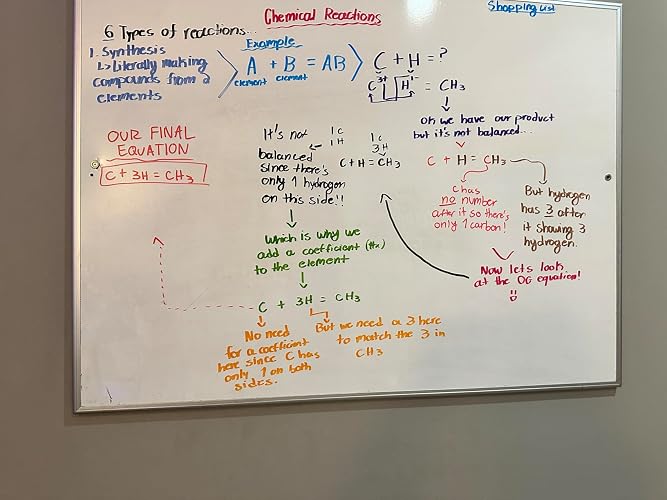 Chemical Reactions
Shopping List
6 Types of reactions...
1. Synthesis
↳ literally making
compounds from 2
elements
Example
A + B = AB
element element
C + H = ?
C³⁺ H¹⁻ = CH₃
Oh we have our product
but it's not balanced...
C + H = CH₃
C has
no number
after it so there's
only 1 carbon!
But hydrogen
has 3 after
it showing 3
hydrogen.
Now lets look
at the OG equation!
It's not
balanced
since there's
only 1 hydrogen
on this side!!
1C 1C
1H 3H
C + H = CH₃
Which is why we
add a coefficient (#x)
to the element
C + 3H = CH₃
No need
for a coefficient
here since C has
only 1 on both
sides.
But we need a 3 here
to match the 3 in
CH₃
OUR FINAL
EQUATION
C + 3H = CH₃